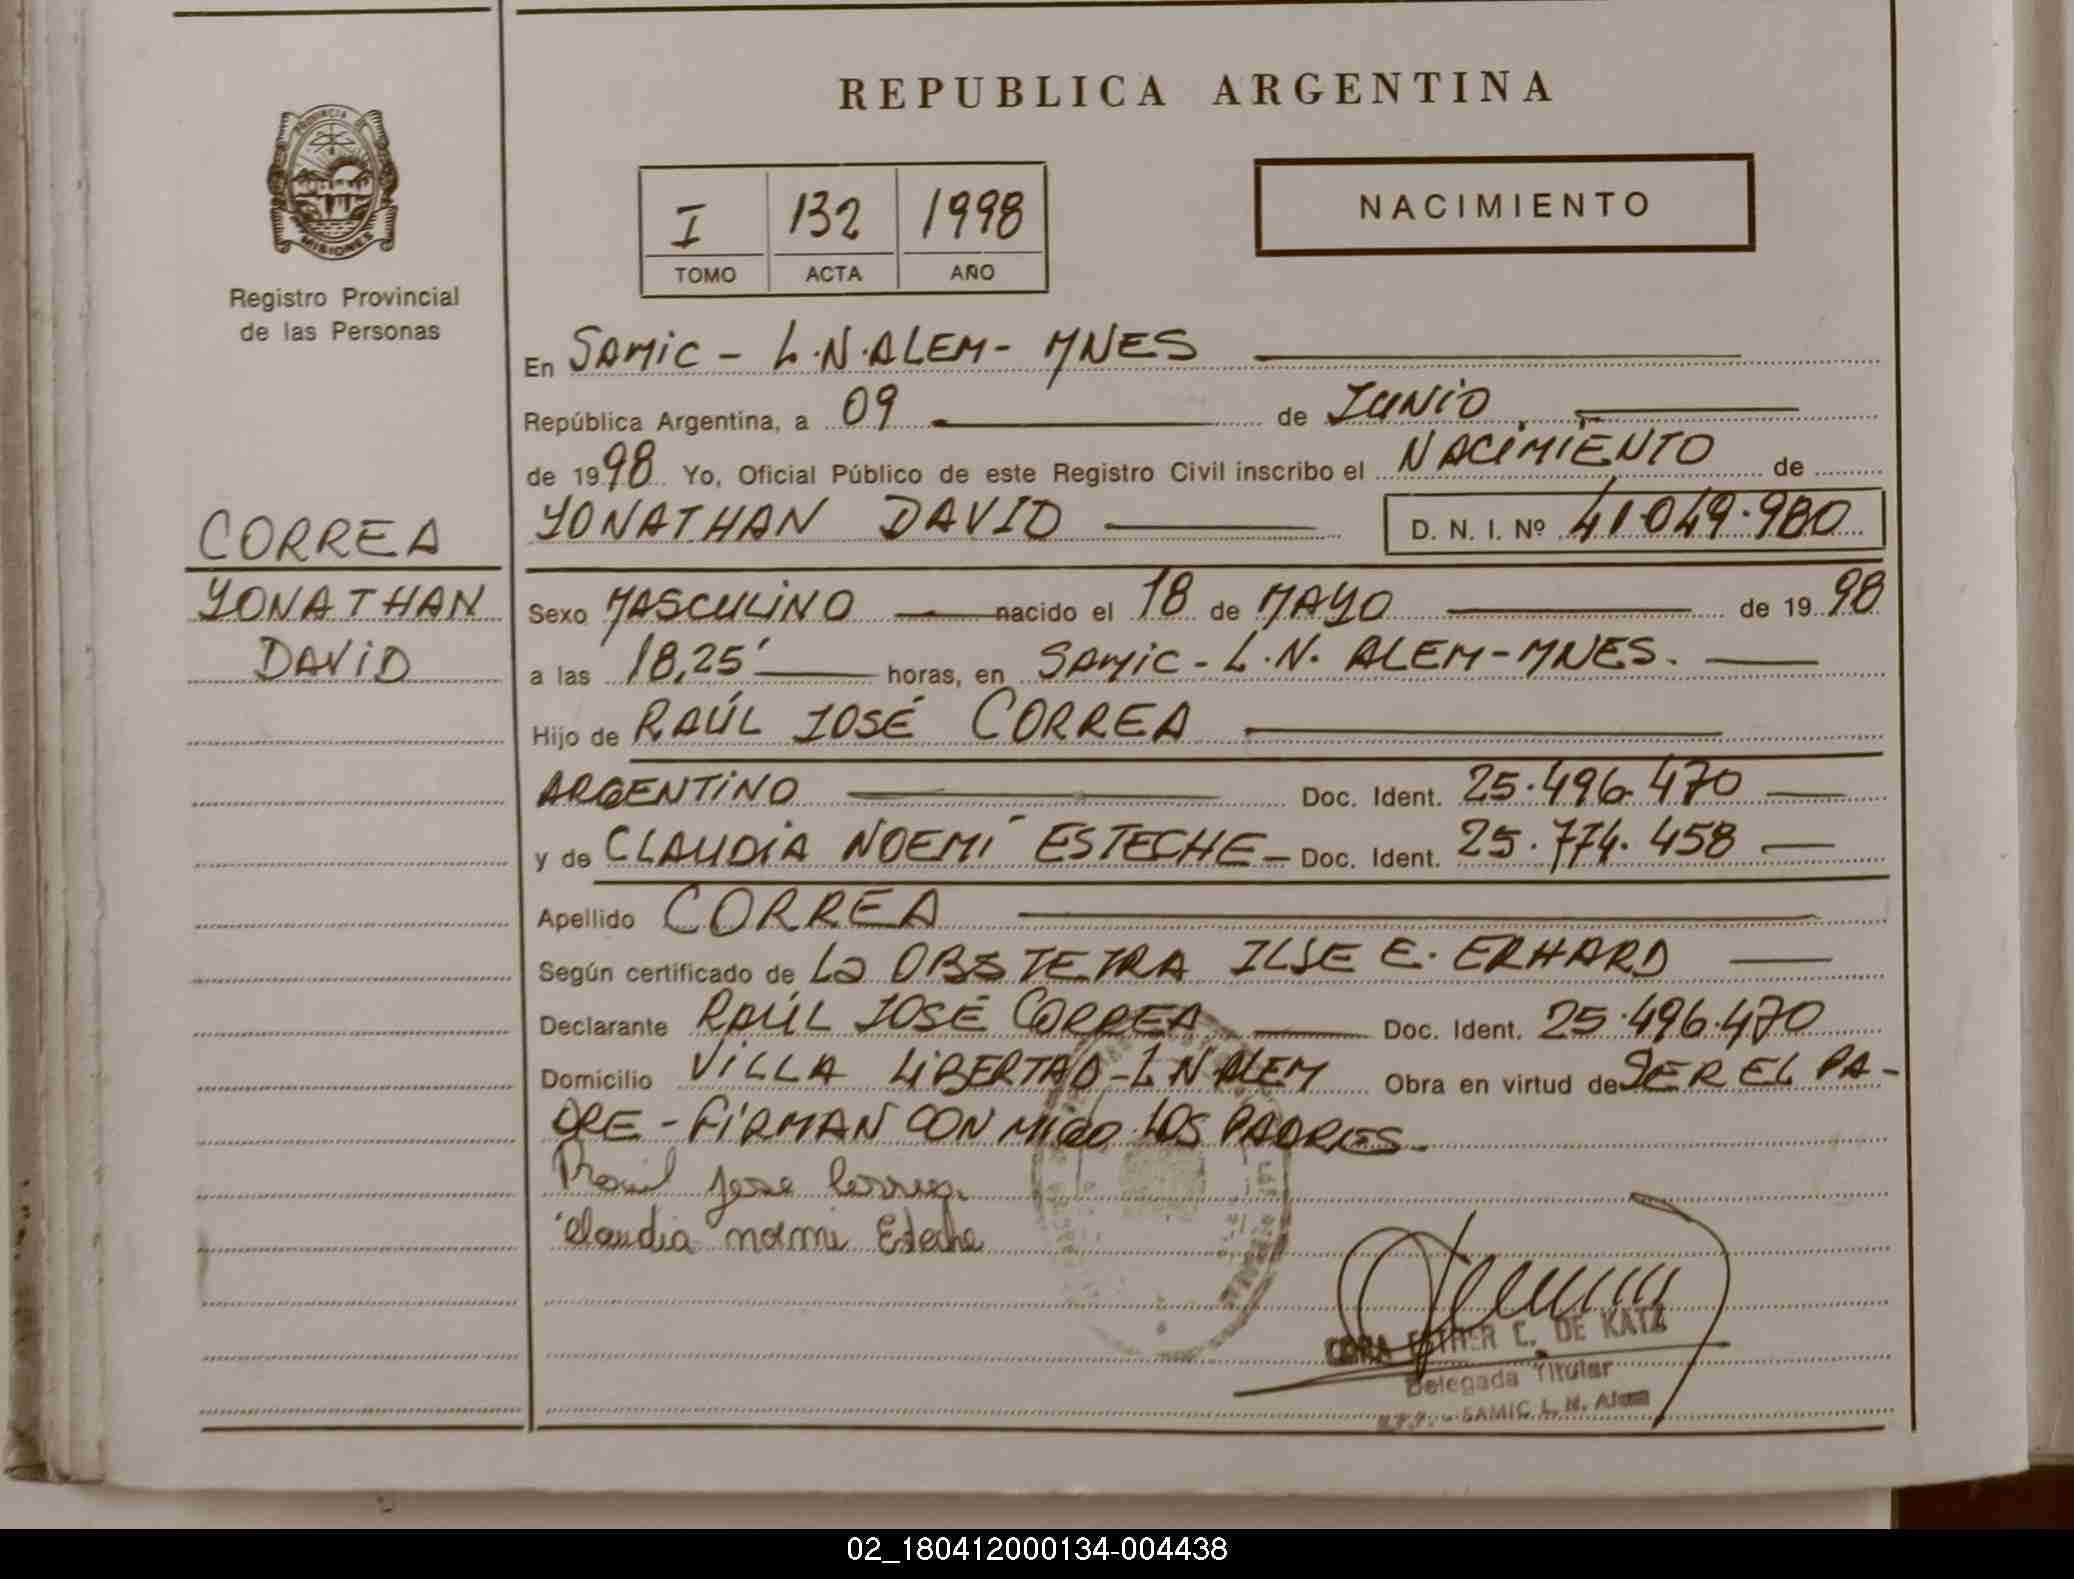 REPUBLICA ARGENTINA
PROVINCIA DE
MISIONES
Registro Provincial
de las Personas
I 132 1998
TOMO ACTA AÑO
NACIMIENTO
En SAMIC - L.N. ALEM - MNES
República Argentina, a 09 de JUNIO
de 1998 Yo, Oficial Público de este Registro Civil inscribo el NACIMIENTO de
YONATHAN DAVID D. N. I. Nº 41.049.980
CORREA
YONATHAN
DAVID
Sexo MASCULINO nacido el 18 de MAYO de 1998
a las 18,25' horas, en SAMIC - L.N. ALEM - MNES.
Hijo de RAÚL JOSÉ CORREA
ARGENTINO Doc. Ident. 25.496.470
y de CLAUDIA NOEMÍ ESTECHE - Doc. Ident. 25.774.458
Apellido CORREA
Según certificado de La OBSTETRA ILSE E. ERHARD
Declarante RAÚL JOSÉ CORREA Doc. Ident. 25.496.470
Domicilio VILLA LIBERTAD - L N ALEM Obra en virtud de SER EL PA-
DRE - FIRMAN CON MIGO LOS PADRES.
Raul Jose Correa
Claudia noemi Esteche
ESTHER C. DE KATZ
Delegada Titular
SAMIC L. N. Alem
02_180412000134-004438